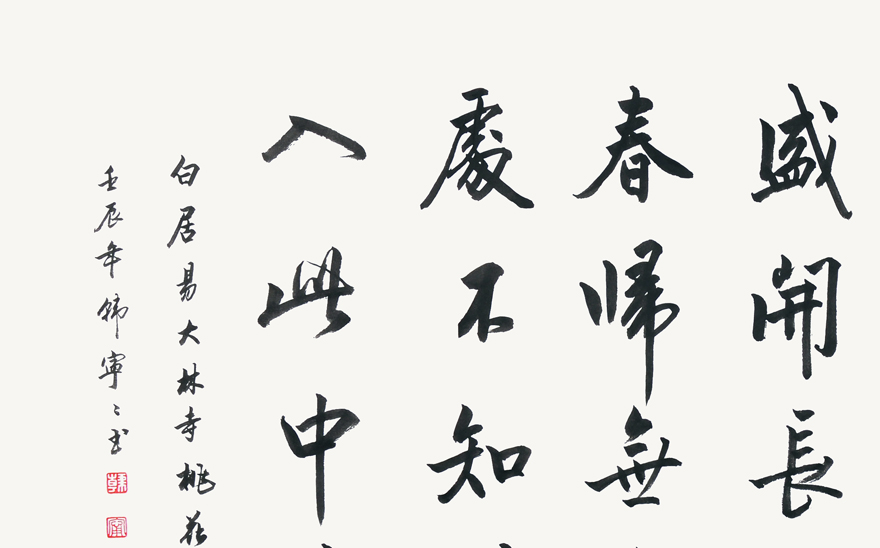 盛開長
春歸無
處不知
入此中
白居易大林寺桃花
壬辰年韓寧寧書
韓
寧